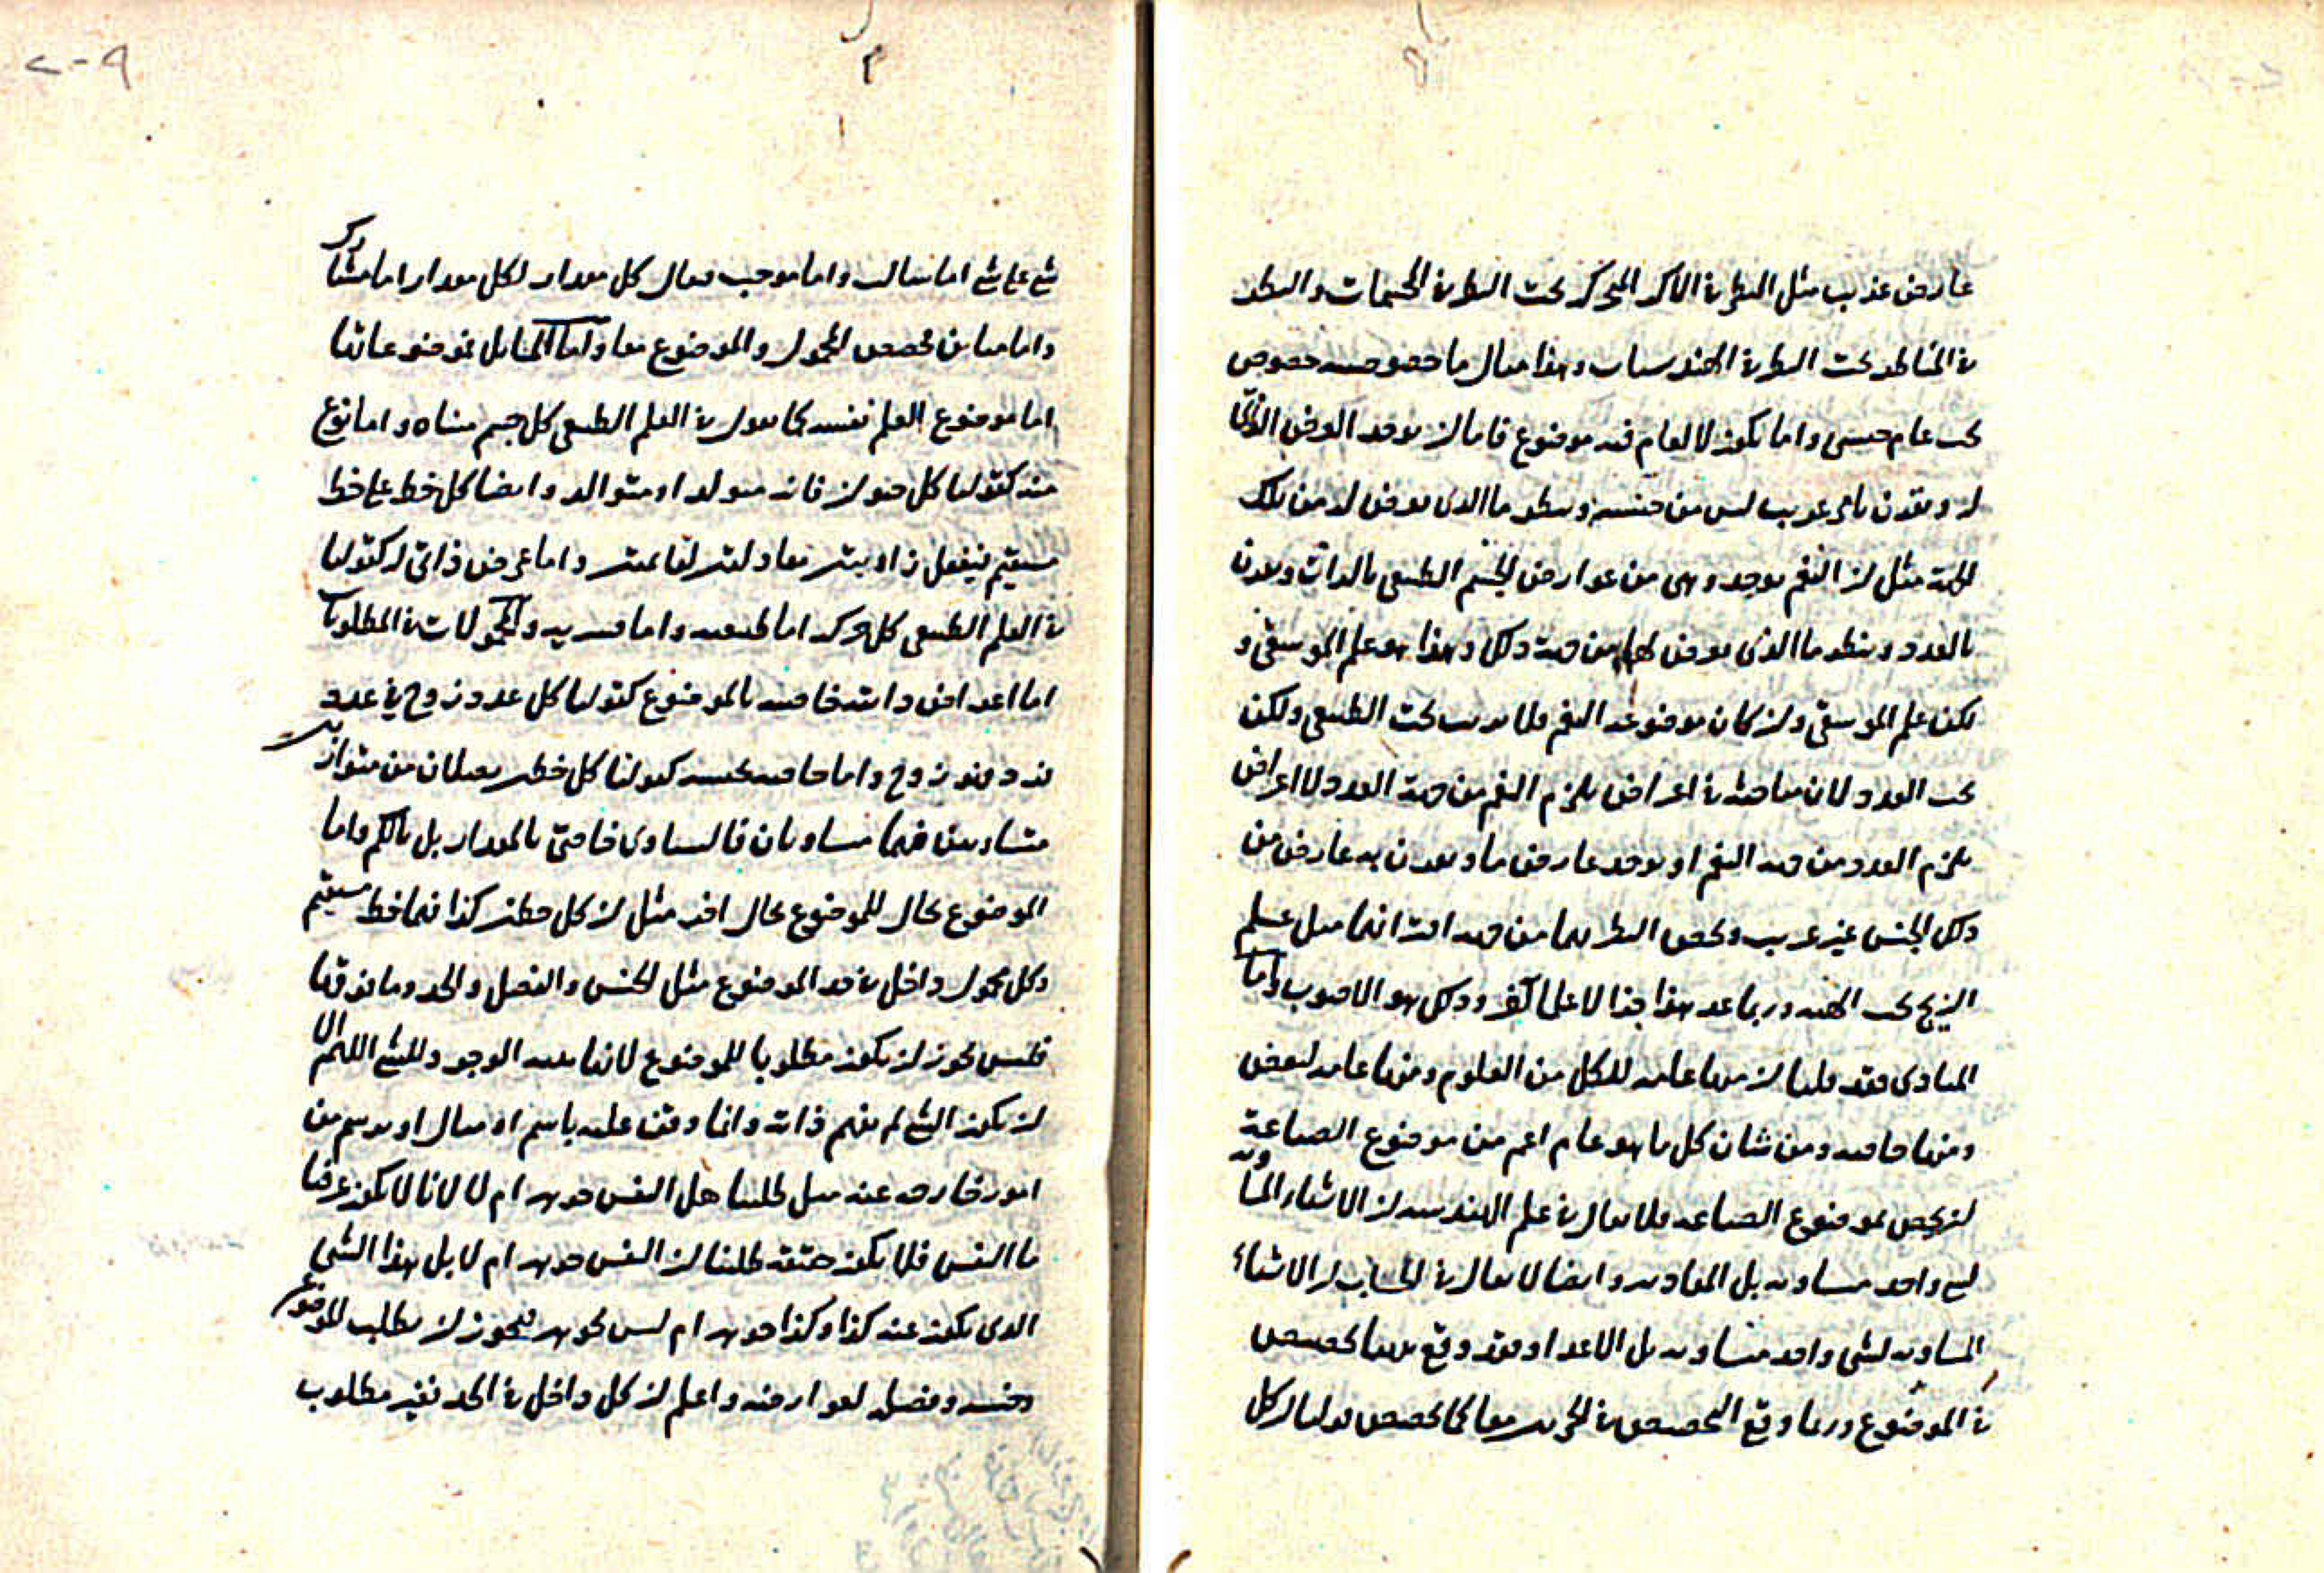 عارض غريب مثل النظر في الاكر المتحركة تحت النظر في المجسمات والنظر
في المناظر تحت النظر في الهندسيات وهذا مثال ما خصوصيته خصوص
تحت عام جنسي واما يكون لا لعام فيه موضوع فاما ان يوخذ العرض الذاتي
له ويقرن بامر غريب ليس من جنسه وينظر ما الذي يعرض له من تلك
الجهة مثل ان النغم يوجد وهي من عوارض الجسم الطبيعي بالذات ويقرن
بالعدد وينظر ما الذي يعرض لها من جهة ذلك وهذا هو علم الموسيقى و
لكن علم الموسيقى وان كان موضوعه النغم فلا يرتب تحت الطبيعي ولكن
تحت العدد لان مباحثه في اعراض يلزم النغم من جهة العدد لا اعراض
يلزم العدد من جهة النغم او يوخذ عارض ما ويقرن به عارض من
ذلك الجنس غير غريب ويخص النظر بهما من جهة اقترانهما مثل علم
الزيج تحت الهيئة وربما عد هذا جزءا لا علما اخر وذلك هو الاصوب واما
المبادي فقد قلنا ان منها عامة للكل من العلوم ومنها عامة لبعض
ومنها خاصة ومن شان كل ما هو عام اعم من موضوع الصناعة
ان يخص بموضوع الصناعة فلا يقال في علم الهندسة ان الاشياء المساوية
لشي واحد متساوية بل المقادير وايضا لا يقال في الحساب ان الاشياء
المساوية لشي واحد متساوية بل الاعداد فقد وقع ههنا تخصيص
في الموضوع وربما وقع التخصيص في الجزين معا كما تخصص قولنا ان كل
شي على شي اما سالب واما موجب فيقال كل مقدار لكل مقدار اما مشارك
واما مباين فخصص المحمول والموضوع معا واما المسايل فموضوعاتها
اما موضوع العلم نفسه كما يقول في العلم الطبيعي كل جسم متناه واما نوع
منه كقولنا كل حيوان فانه متولد او متوالد وايضا كل خط على خط
مستقيم فيفعل زاويتين معادلتين لقائمتين واما عرض ذاتي له كقولنا
في العلم الطبيعي كل حركة اما طبيعية واما قسرية والمحمولات في المطلوبات
اما اعراض ذاتية خاصة بالموضوع كقولنا كل عدد زوج في عدد
فرد فهو زوج واما خاصة بجنسه كقولنا كل خطين يصلان من متوازيين
متساويين فهما متساويان فالمساوي خاصتي بالمقدار بل بالكم واما
الموضوع بحال للموضوع بحال اخر مثل ان كل خطين كذا فهما خط مستقيم
وكل محمول داخل في حد الموضوع مثل الجنس والفصل والحد وما فوقها
فليس يجوز ان يكون مطلوبا للموضوع لانها بينة الوجود للشي اللهم الا
ان يكون الشي لم يفهم ذاته وانما وقف عليه باسم او مثال او برسم من
امور خارجة عنه مثل طلبنا هل النفس جوهر ام لا لانا لا يكون عرفنا
ما النفس فلا يكون حقيقة طلبنا ان النفس جوهر ام لا بل هذا الشي
الذي يكون عنه كذا وكذا جوهر ام ليس بجوهر فيجوز ان يطلب للموضوع
جنسه وفصله لعوارضه واعلم ان كل داخل في الحد فغير مطلوب